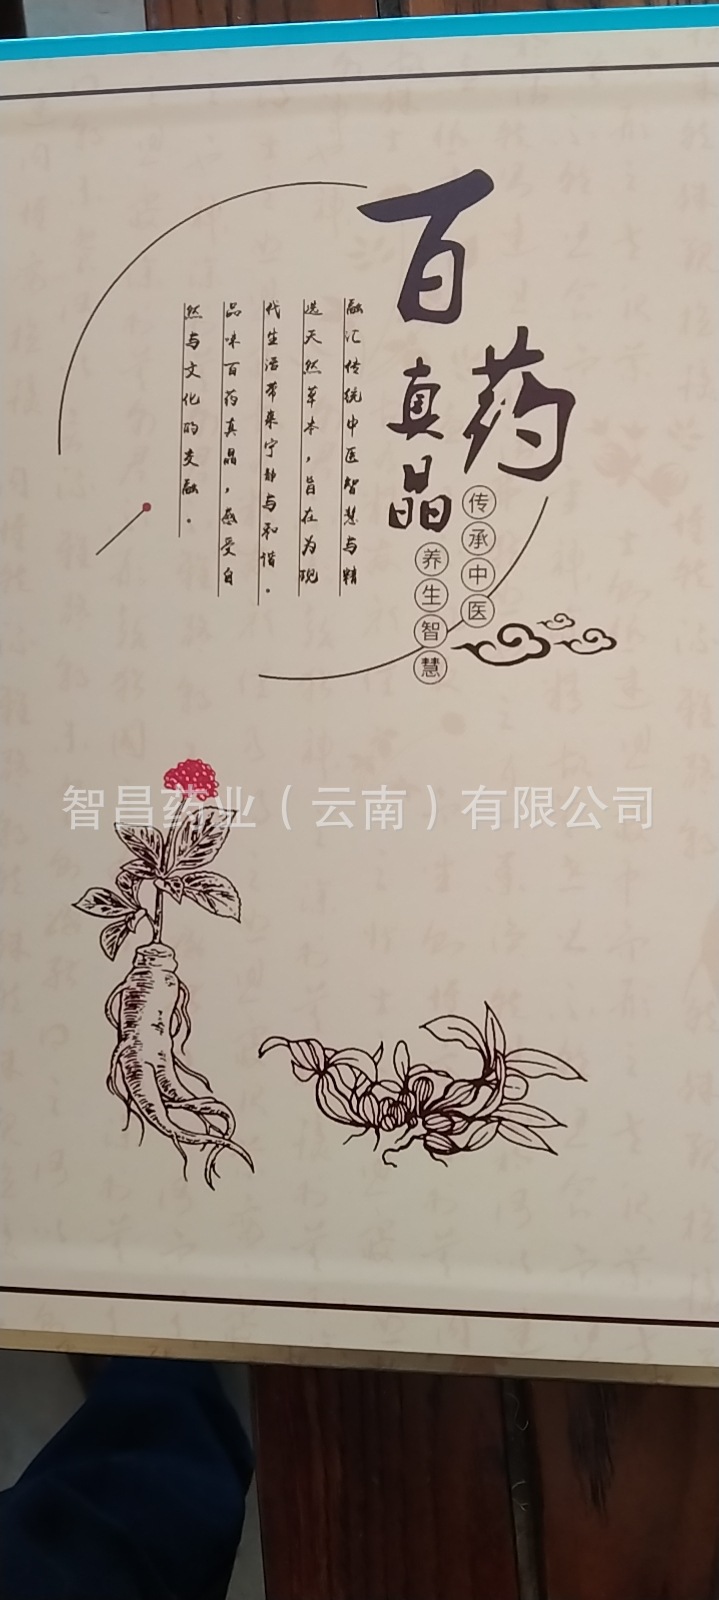 百药
真晶
传承中医
养生智慧
融汇传统中医智慧与精
选天然草本，旨在为现
代生活带来宁静与和谐。
品味百药真晶，感受自
然与文化的交融。
智昌药业（云南）有限公司